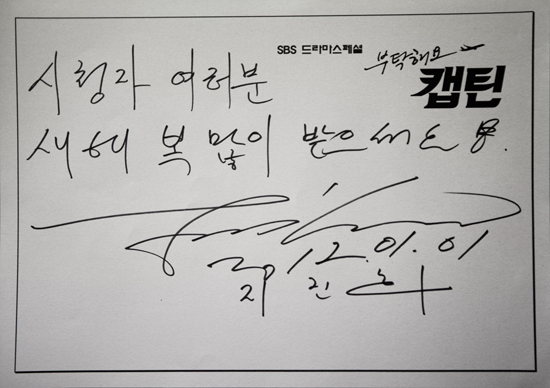 SBS 드라마스페셜
부탁해요
캡틴
시청자 여러분
새해 복 많이 받으세요.
2012.01.01
지진희